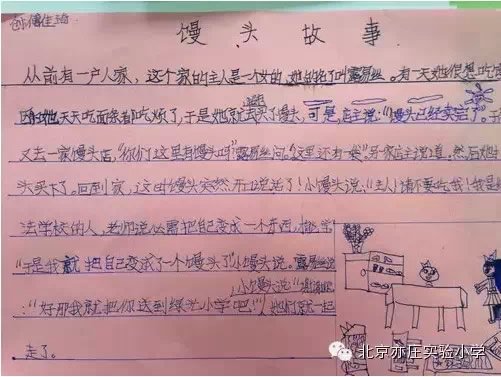 傅佳琦
馒头故事
从前有一户人家，这个家的主人是一个女的，她的名字叫露易丝。有一天她很想吃
因为她天天吃面条都吃烦了，于是她就去买了馒头，可是，店主说：“馒头已经卖完了。”于
又去一家馒头店，“你们这里有馒头吗？”露易丝问。“这里还有一袋”另一家店主说道，然后她
头买下了。回到家，这时馒头突然开口说话了！小馒头说：“主人！请不要吃我！我是
法学校的人，老师说必需把自己变成一个东西，
“于是我就把自己变成了一个馒头了”小馒头说。露易丝说
：“好那我就把你送到绿光小学吧！”小馒头说：“谢谢 她们就一起
走了。
北京亦庄实验小学